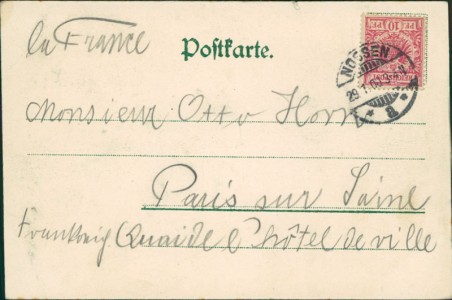 La France
Postkarte.
NOSSEN
Monsieur Otto Horn
Paris sur Saine
Frankreich Quai de l'hôtel de ville